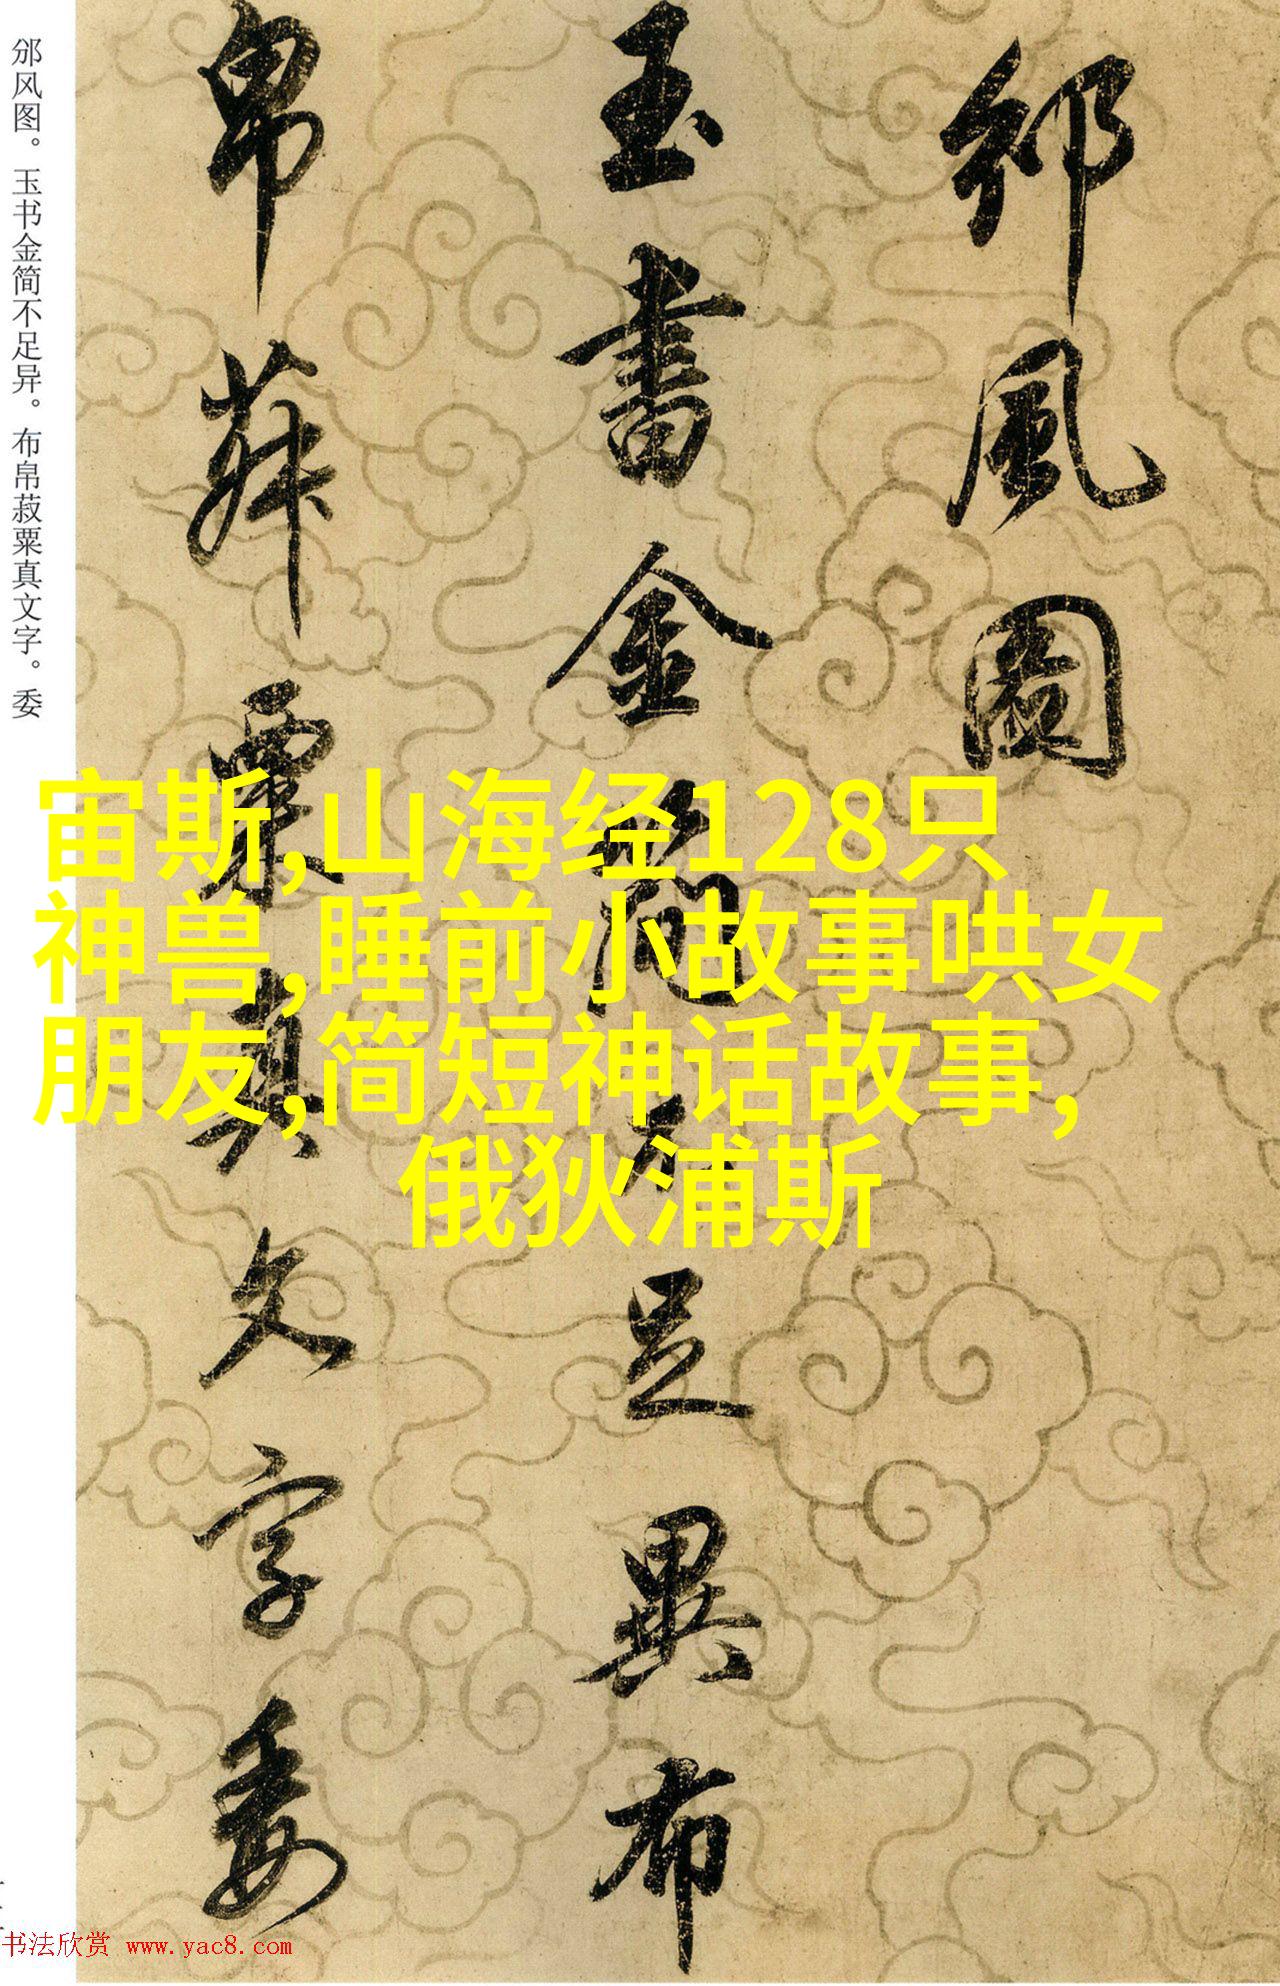 邠風圖
玉書金簡不足異布
帛菽粟真文字委
邠风图。玉书金简不足异。布帛菽粟真文字。委
宙斯,山海经128只
神兽,睡前小故事哄女
朋友,简短神话故事,
俄狄浦斯
书法欣赏 www.yac8.com